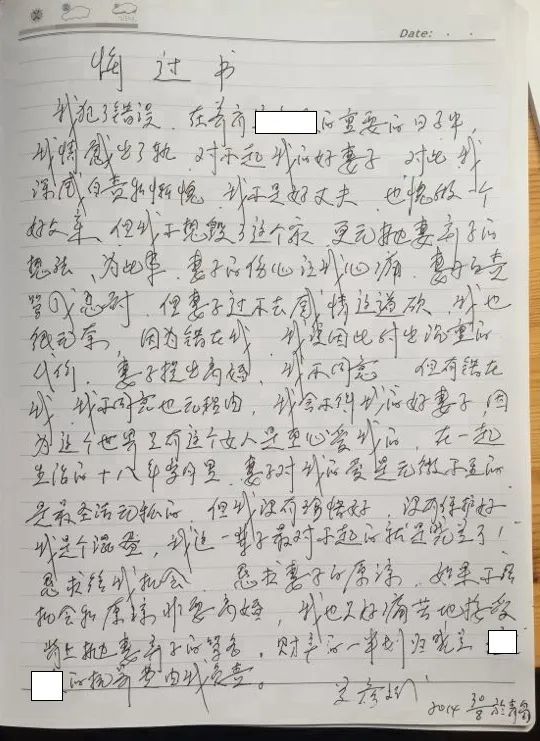 Date:
悔过书
我犯了错误,在养育的重要的日子里,
我情感出了轨,对不起我的好妻子,对此我
深感自责和惭愧,我不是好丈夫,也愧做一个
好父亲,但我不想毁了这个家,更无抛妻弃子的
想法,为此事,妻子的伤心让我心痛,妻
但妻子过不去感情这道砍,我也
很无奈,因为错在我,我因此付出沉重的
代价,妻子提出离婚,我不同意,但有错在
我,我不同意也无理由,我舍不得我的好妻子,因
为这个世界只有这个女人是真心爱我的,在一起
生活的十八年岁月里,妻子对我的爱是无微不至的
是最圣洁无私的,但我没有珍惜好,没有保护好
我是个混蛋,我这一辈子最对不起的就是了!
恳求给我机会,恳求妻子的原谅,如果不给
机会和原谅非要离婚,我也只好痛苦地接受
背上抛妻弃子的罪名,财产的一半划归
的抚养费由我负责。
2014 30/8 於青岛